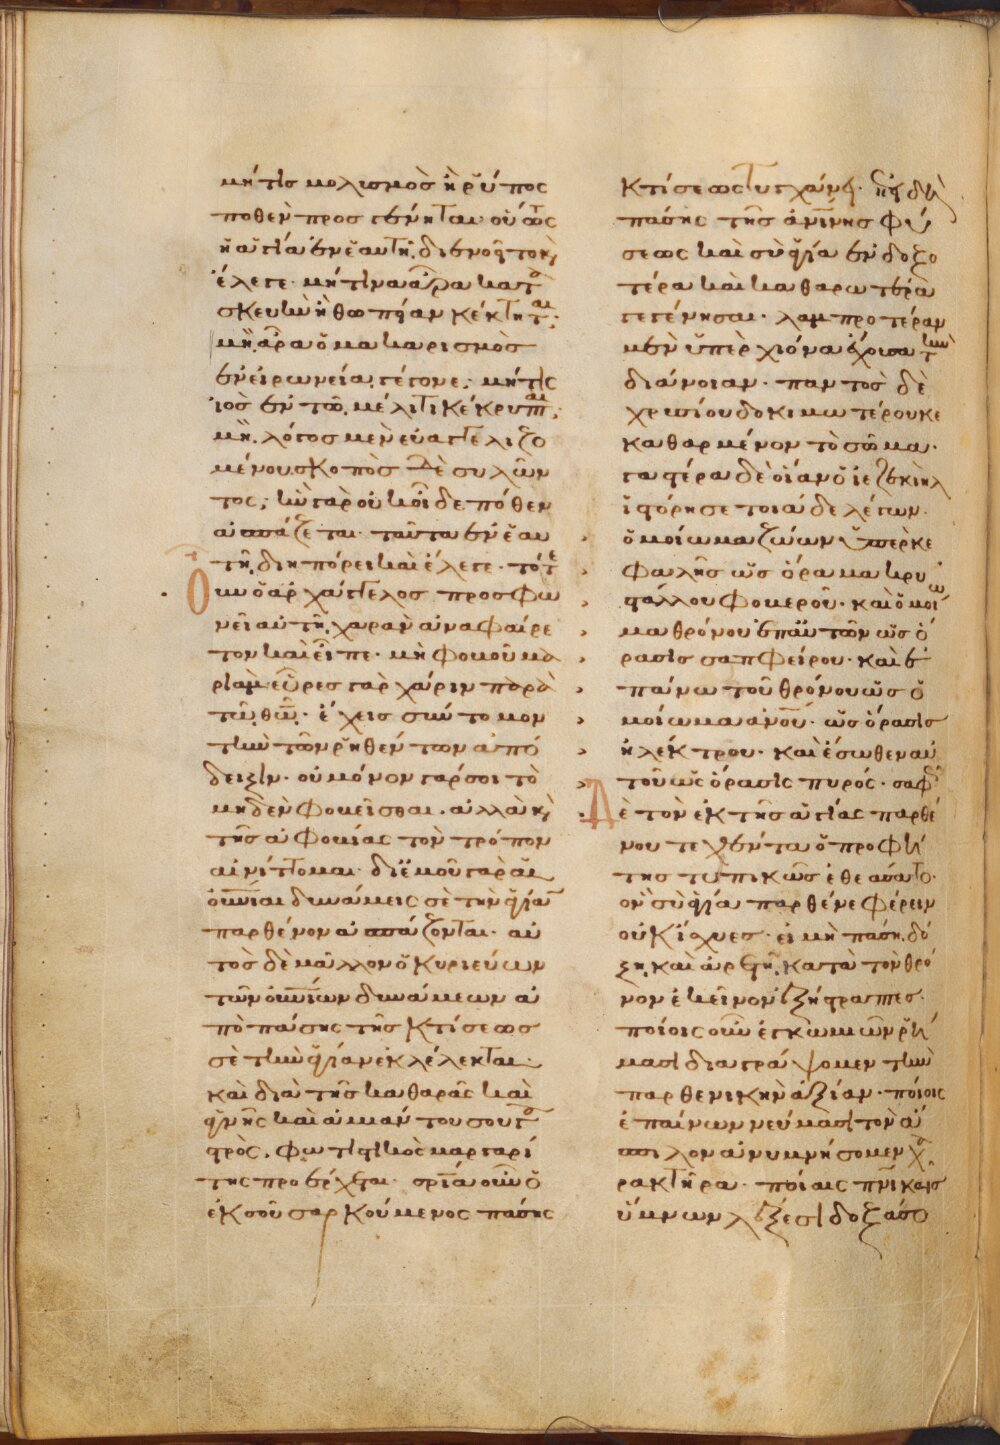 μή τις μολισμὸσ ἢ ῥύπος
ποθεν προς γενηται· οὐ
ἡ ἁγία ἐν ἑαυτῆ. διενοεῖτο κ,
ἔλεγε· μή τινα ἄρα κατὰ
σκευὴν ἡ θωπεία κέκτηται;
μὴ ἄρα ὁ μακαρισμὸσ
ἐν εἰρωνεία γέγονε; μή τις
ἰὸς ἐν τῶ μέλιτι κέκρυπται;
μὴ λόγος μὲν εὐαγγελιζο
μένου σκοπὸς δὲ συλῶν
τος; κἂν γὰρ οὐκ οἶδε πόθεν
ἀσπάζεται. ταῦτα ἐν ἑαυ
τῆ. διηπόρει καὶ ἔλεγε. τότε
Οὖν ὁ ἀρχάγγελος προσφω
νεῖ αὐτῆ. χαρὰν ἀναφαίρε
τον καὶ εἶπε· μὴ φοβοῦ μα
ριάμ εὗρες γὰρ χάριν παρὰ
τῶ θῶ· ἔχεις σύντομον
τὴν τῶν ῥηθέντων ἀπό
δειξιν· οὐ μόνον γάρ σοι τὸ
μηδὲν φοβεῖσθαι. ἀλλὰ κ,
τῆς ἀφοβίας τὸν τρόπον
αἰνίττομαι· δι ἐμοῦ γὰρ αἱ
οὐνιαι δυνάμεις σὲ τὴν ἁγίαν
παρθένον ἀσπάζονται· αὐ
τὸς δὲ μᾶλλον ὁ κυριεύων
τῶν οὐνίων δυνάμεων ἀ
πὸ πάσης τῆς κτίσεως
σὲ τὴν ἁγίαν ἐκλέλεκται·
καὶ διὰ τῆς καθαρᾶς καὶ
ἁγνῆς καὶ ἀμιάντου σου γαστρὸς
φωτιστικὸς μαργαρί
της προσέρχεται· σρία οὖν ὁ
ἐκ σοῦ σαρκούμενος πάσης
κτίσεως τυγχάνει·
πάσης τῆς ἀνίνης φύ
σεως καὶ σὺ ἁγία ἐνδοξο
τέρα καὶ καθαρωτέρα
γεγένησαι. λαμπροτέραν
μὲν ὑπὲρ χιόνα ἔχουσα τὴν
διάνοιαν· παντὸς δὲ
χρυσίου δοκιμωτέρου κε
καθαρμένον τὸ σῶμα·
τα φέρα δὲ οἷαν ὁ ἰεζεκιὴλ
ἱστόρησε τοιάδε λέγων·
ὁμοίωμα ζώων ὑπερ κε
φαλῆς ὡς ὅραμα κρυ
στάλλου φοβεροῦ· καὶ ὁμοί
μα θρόνου ἐπ αὐτῶν ὡς ὅ
ρασις σαπφείρου· καὶ ἐ
πάνω τοῦ θρόνου ὡς ὁ
μοίωμα ἀνοῦ· ὡς ὅρασις
ἠλέκτρου· καὶ ἔσωθεν αὐ
τοῦ ὡς ὅρασις πυρός· σαφῶς
Δὲ τὸν ἐκ τῆς ἁγίας παρθέ
νου τεχθέντα ὁ προφή
της τυπικῶς ἐθεάσατο·
ὃν σὺ ἁγία παρθένε φέρειν
οὐκ ἴσχυες· εἰ μὴ πάση δό
ξη καὶ ἀρετῆ κατὰ τὸν θρό
νον ἐκεῖνον ἐξήστραπτες·
ποίοις οὖν ἐγκωμιῶν ῥή
μασι διαγράψομεν τὴν
παρθενικὴν ἀξίαν· ποίοις
ἐπαίνων νεύμασι τὸν ἄ
σπιλον ἀνυμνήσομεν χα
ρακτῆρα· ποίαις πνικαῖς
ὕμνων λέξεσι δοξάσο